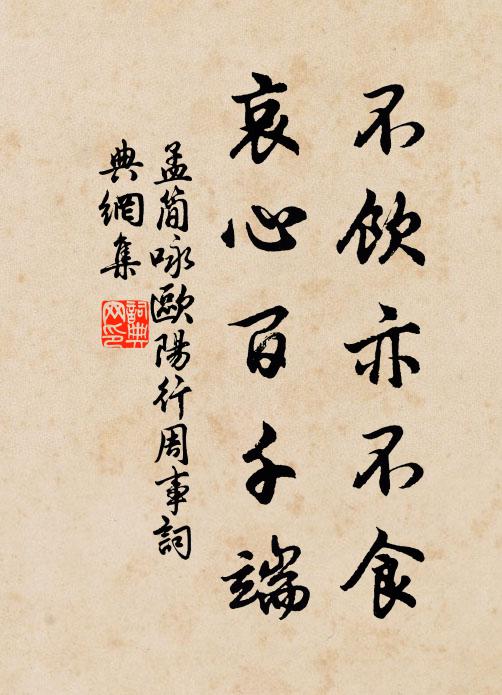 不飲亦不食
哀心百千端
孟簡咏歐陽行周事詞
典網集
詞典网印